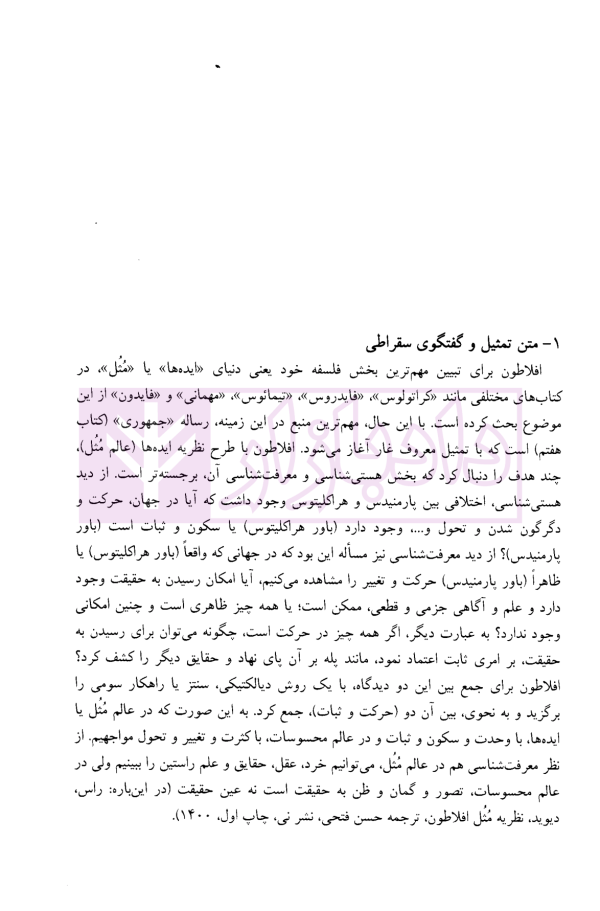 ۱- متن تمثیل و گفتگوی سقراطی
افلاطون برای تبیین مهم‌ترین بخش فلسفه خود یعنی دنیای «ایده‌ها» یا «مُثُل»، در
کتاب‌های مختلفی مانند «کراتولوس»، «فایدروس»، «تیمائوس»، «مهمانی» و «فایدون» از این
موضوع بحث کرده است. با این حال، مهم‌ترین منبع در این زمینه، رساله «جمهوری» (کتاب
هفتم) است که با تمثیل معروف غار آغاز می‌شود. افلاطون با طرح نظریه ایده‌ها (عالم مُثُل)،
چند هدف را دنبال کرد که بخش هستی‌شناسی و معرفت‌شناسی آن، برجسته‌تر است. از دید
هستی‌شناسی، اختلافی بین پارمنیدس و هراکلیتوس وجود داشت که آیا در جهان، حرکت و
دگرگون شدن و تحول و...، وجود دارد (باور هراکلیتوس) یا سکون و ثبات است (باور
پارمنیدس)؟ از دید معرفت‌شناسی نیز مسأله این بود که در جهانی که واقعاً (باور هراکلیتوس) یا
ظاهراً (باور پارمنیدس) حرکت و تغییر را مشاهده می‌کنیم، آیا امکان رسیدن به حقیقت وجود
دارد و علم و آگاهی جزمی و قطعی، ممکن است؛ یا همه چیز ظاهری است و چنین امکانی
وجود ندارد؟ به عبارت دیگر، اگر همه چیز در حرکت است، چگونه می‌توان برای رسیدن به
حقیقت، بر امری ثابت اعتماد نمود، مانند پله بر آن پای نهاد و حقایق دیگر را کشف کرد؟
افلاطون برای جمع بین این دو دیدگاه، با یک روش دیالکتیکی، سنتز یا راهکار سومی را
برگزید و به نحوی، بین آن دو (حرکت و ثبات)، جمع کرد. به این صورت که در عالم مُثُل یا
ایده‌ها، با وحدت و سکون و ثبات و در عالم محسوسات، با کثرت و تغییر و تحول مواجهیم. از
نظر معرفت‌شناسی هم در عالم مُثُل، می‌توانیم خرد، عقل، حقایق و علم راستین را ببینیم ولی در
عالم محسوسات، تصور و گمان و ظن به حقیقت است نه عین حقیقت (در این‌باره: راس،
دیوید، نظریه مُثُل افلاطون، ترجمه حسن فتحی، نشر نی، چاپ اول، ۱۴۰۰).
دادبازار